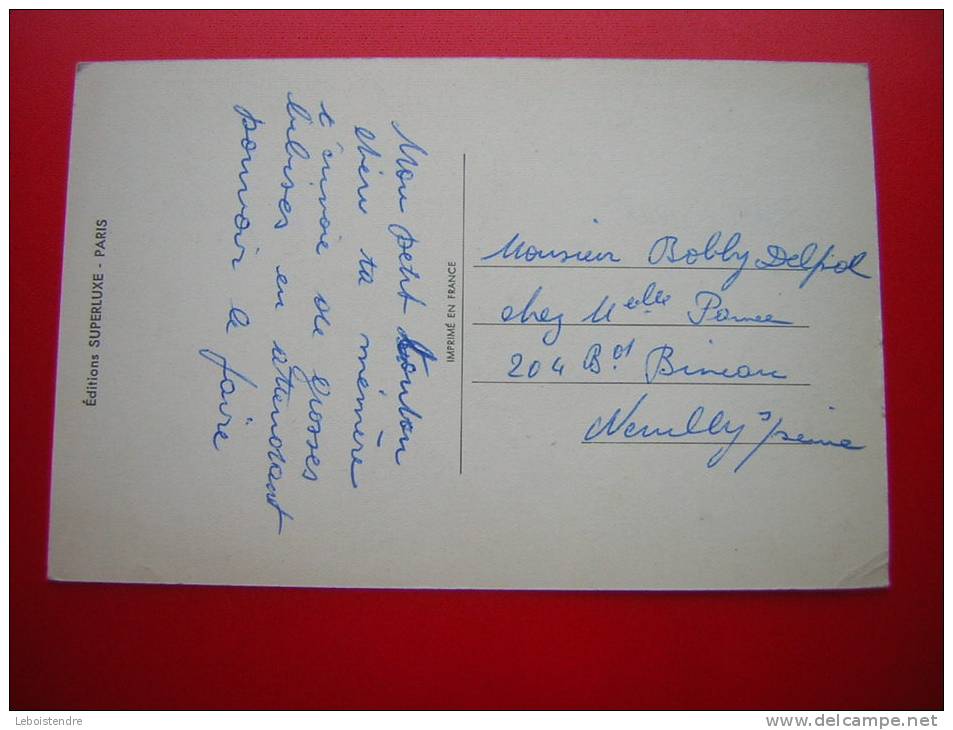 Mon petit tonton
chéri ta mémère
t'envoie de grosses
bibises en attendant
pouvoir le faire
Éditions SUPERLUXE - PARIS
IMPRIMÉ EN FRANCE
Monsieur Bobby Delpiol
chez Melle Pomee
204 Bd Bineau
Neuilly s/seine
Leboistendre
www.delcampe.net